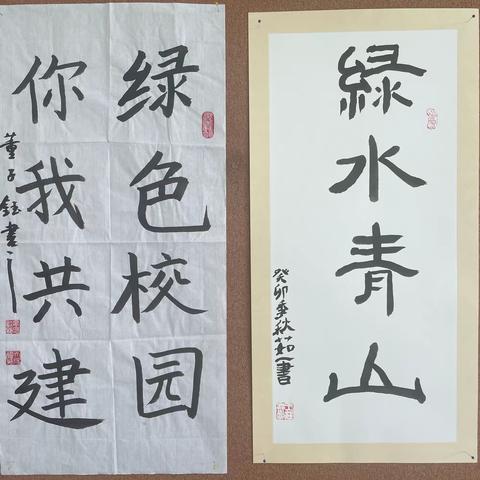 绿色校园
你我共建
董子钰書
緑水青山
癸卯季秋茹一書